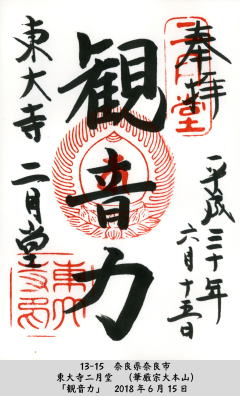 奉拝
二月堂
平成三十年
六月十五日
観音力
東大寺 二月堂
13-15 奈良県奈良市
東大寺二月堂 （華厳宗大本山）
「観音力」 2018年6月15日